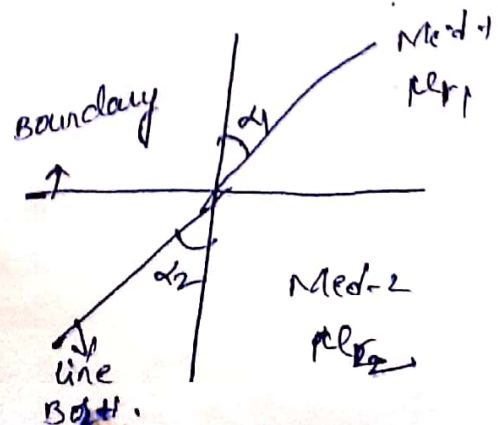 Med-1
μr1
Boundary
α1
α2
Med-2
μr2
line
B or H.